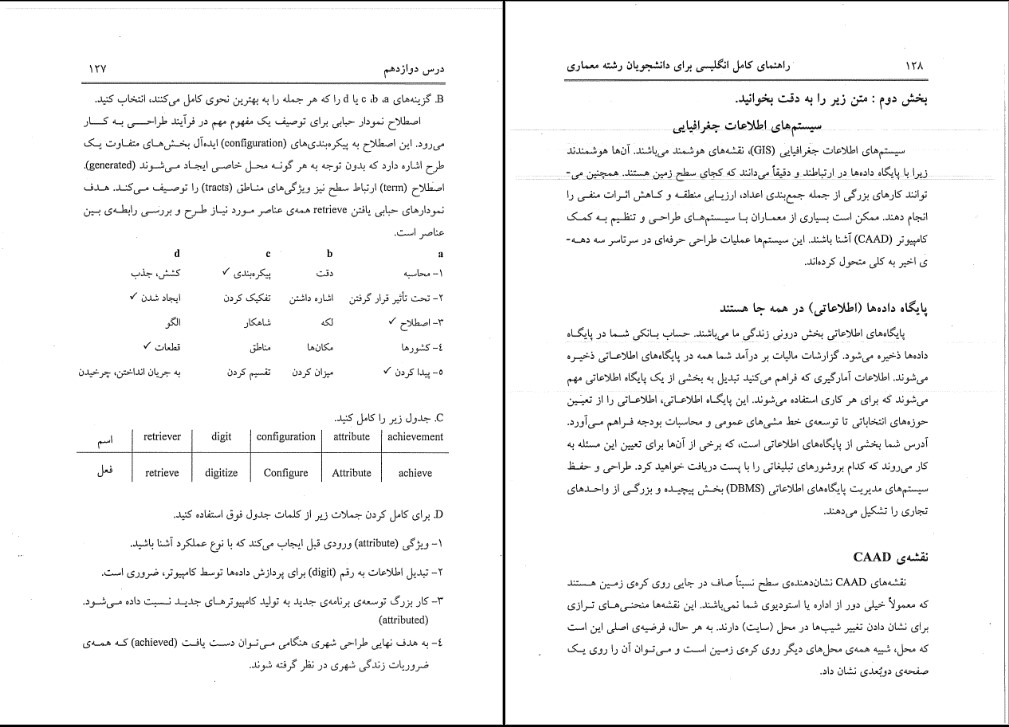 درس دوازدهم ۱۲۷
B. گزینه‌های c ،b ،a یا d را که هر جمله را به بهترین نحوی کامل می‌کنند، انتخاب کنید.
اصطلاح نمودار حبابی برای توصیف یک مفهوم مهم در فرآیند طراحی به کار
می‌رود. این اصطلاح به پیکره‌بندی‌های (configuration) ایده‌آل بخش‌های متفاوت یک
طرح اشاره دارد که بدون توجه به هر گونه محل خاصی ایجاد می‌شوند (generated).
اصطلاح (term) ارتباط سطح نیز ویژگی‌های مناطق (tracts) را توصیف می‌کند. هدف
نمودارهای حبابی یافتن retrieve همه‌ی عناصر مورد نیاز طرح و بررسی رابطه‌ی بین
عناصر است.
a b c d
۱- محاسبه دقت پیکره‌بندی ✓ کشش، جذب
۲- تحت تأثیر قرار گرفتن اشاره داشتن تفکیک کردن ایجاد شدن ✓
۳- اصطلاح ✓ لکه شاهکار الگو
٤- کشورها مکان‌ها مناطق قطعات ✓
۵- پیدا کردن ✓ میزان کردن تقسیم کردن به جریان انداختن، چرخیدن
C. جدول زیر را کامل کنید.
اسم retriever digit configuration attribute achievement
فعل retrieve digitize Configure Attribute achieve
D. برای کامل کردن جملات زیر از کلمات جدول فوق استفاده کنید.
۱- ویژگی (attribute) ورودی قبل ایجاب می‌کند که با نوع عملکرد آشنا باشید.
۲- تبدیل اطلاعات به رقم (digit) برای پردازش داده‌ها توسط کامپیوتر، ضروری است.
۳- کار بزرگ توسعه‌ی برنامه‌ی جدید به تولید کامپیوترهای جدید نسبت داده می‌شود.
(attributed)
٤- به هدف نهایی طراحی شهری هنگامی می‌توان دست یافت (achieved) که همه‌ی
ضروریات زندگی شهری در نظر گرفته شوند.
۱۲۸ راهنمای کامل انگلیسی برای دانشجویان رشته معماری
بخش دوم : متن زیر را به دقت بخوانید.
سیستم‌های اطلاعات جغرافیایی
سیستم‌های اطلاعات جغرافیایی (GIS)، نقشه‌های هوشمند می‌باشند. آن‌ها هوشمندند
زیرا با پایگاه داده‌ها در ارتباطند و دقیقاً می‌دانند که کجای سطح زمین هستند. همچنین می-
توانند کارهای بزرگی از جمله جمع‌بندی اعداد، ارزیابی منطقه و کاهش اثرات منفی را
انجام دهند. ممکن است بسیاری از معماران با سیستم‌های طراحی و تنظیم به کمک
کامپیوتر (CAAD) آشنا باشند. این سیستم‌ها عملیات طراحی حرفه‌ای در سرتاسر سه دهه-
ی اخیر به کلی متحول کرده‌اند.
پایگاه داده‌ها (اطلاعاتی) در همه جا هستند
پایگاه‌های اطلاعاتی بخش درونی زندگی ما می‌باشند. حساب بانکی شما در پایگاه
داده‌ها ذخیره می‌شود. گزارشات مالیات بر درآمد شما همه در پایگاه‌های اطلاعاتی ذخیره
می‌شوند. اطلاعات آمارگیری که فراهم می‌کنید تبدیل به بخشی از یک پایگاه اطلاعاتی مهم
می‌شوند که برای هر کاری استفاده می‌شوند. این پایگاه اطلاعاتی، اطلاعاتی را از تعیین
حوزه‌های انتخاباتی تا توسعه‌ی خط مشی‌های عمومی و محاسبات بودجه فراهم می‌آورد.
آدرس شما بخشی از پایگاه‌های اطلاعاتی است، که برخی از آن‌ها برای تعیین این مسئله به
کار می‌روند که کدام بروشورهای تبلیغاتی را با پست دریافت خواهید کرد. طراحی و حفظ
سیستم‌های مدیریت پایگاه‌های اطلاعاتی (DBMS) بخش پیچیده و بزرگی از واحدهای
تجاری را تشکیل می‌دهند.
نقشه‌ی CAAD
نقشه‌های CAAD نشان‌دهنده‌ی سطح نسبتاً صاف در جایی روی کره‌ی زمین هستند
که معمولاً خیلی دور از اداره یا استودیوی شما نمی‌باشند. این نقشه‌ها منحنی‌های ترازی
برای نشان دادن تغییر شیب‌ها در محل (سایت) دارند. به هر حال، فرضیه‌ی اصلی این است
که محل، شبیه همه‌ی محل‌های دیگر روی کره‌ی زمین است و می‌توان آن را روی یک
صفحه‌ی دوبُعدی نشان داد.